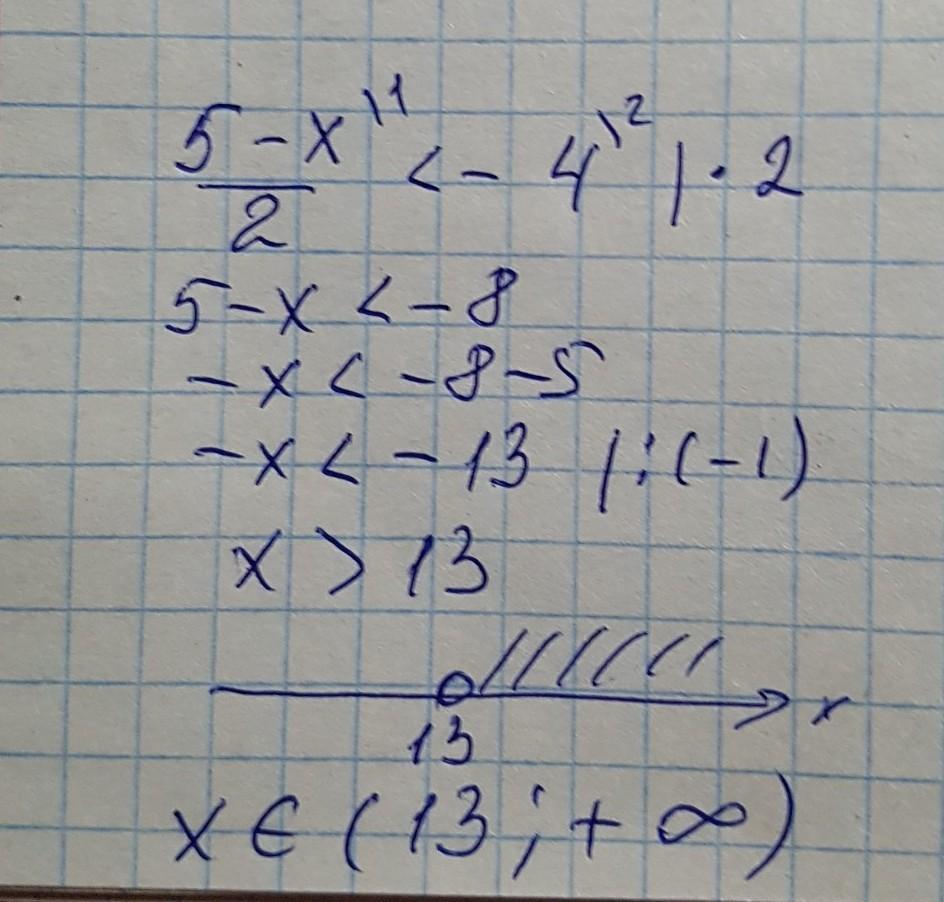 5-x\1 / 2 < - 4\2 | · 2
5-x < -8
-x < -8-5
-x < -13 | : (-1)
x > 13
x
13
x ∈ (13; + ∞)